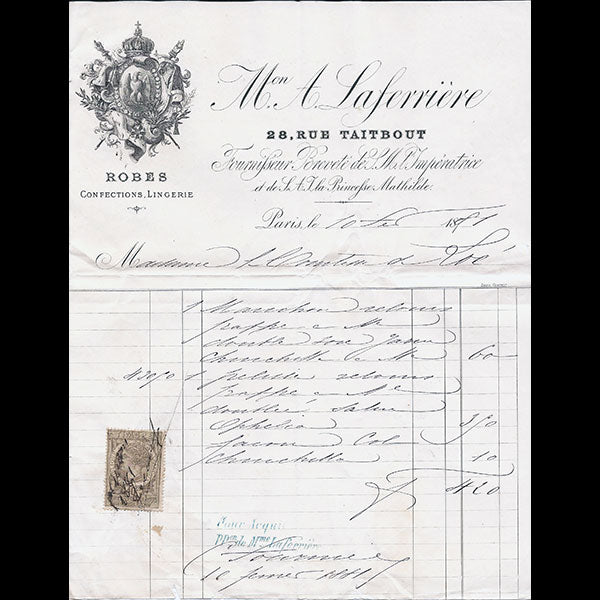 Mon A. Laferrière
28, RUE TAITBOUT
Fournisseur Breveté de S.M. l'Impératrice
et de S.A.I. la Princesse Mathilde.
ROBES
CONFECTIONS, LINGERIE
Paris, le 10 1881
Madame la Comtesse de
1 Manchon velours
frappé
doublé
Chinchilla 60
1 pelisse velours
frappé
doublée Satin
Ophelia 350
façon Col
Chinchilla 10
F 420
Pour Acquit
ppon de Mme Laferrière
10 fevrier 1881